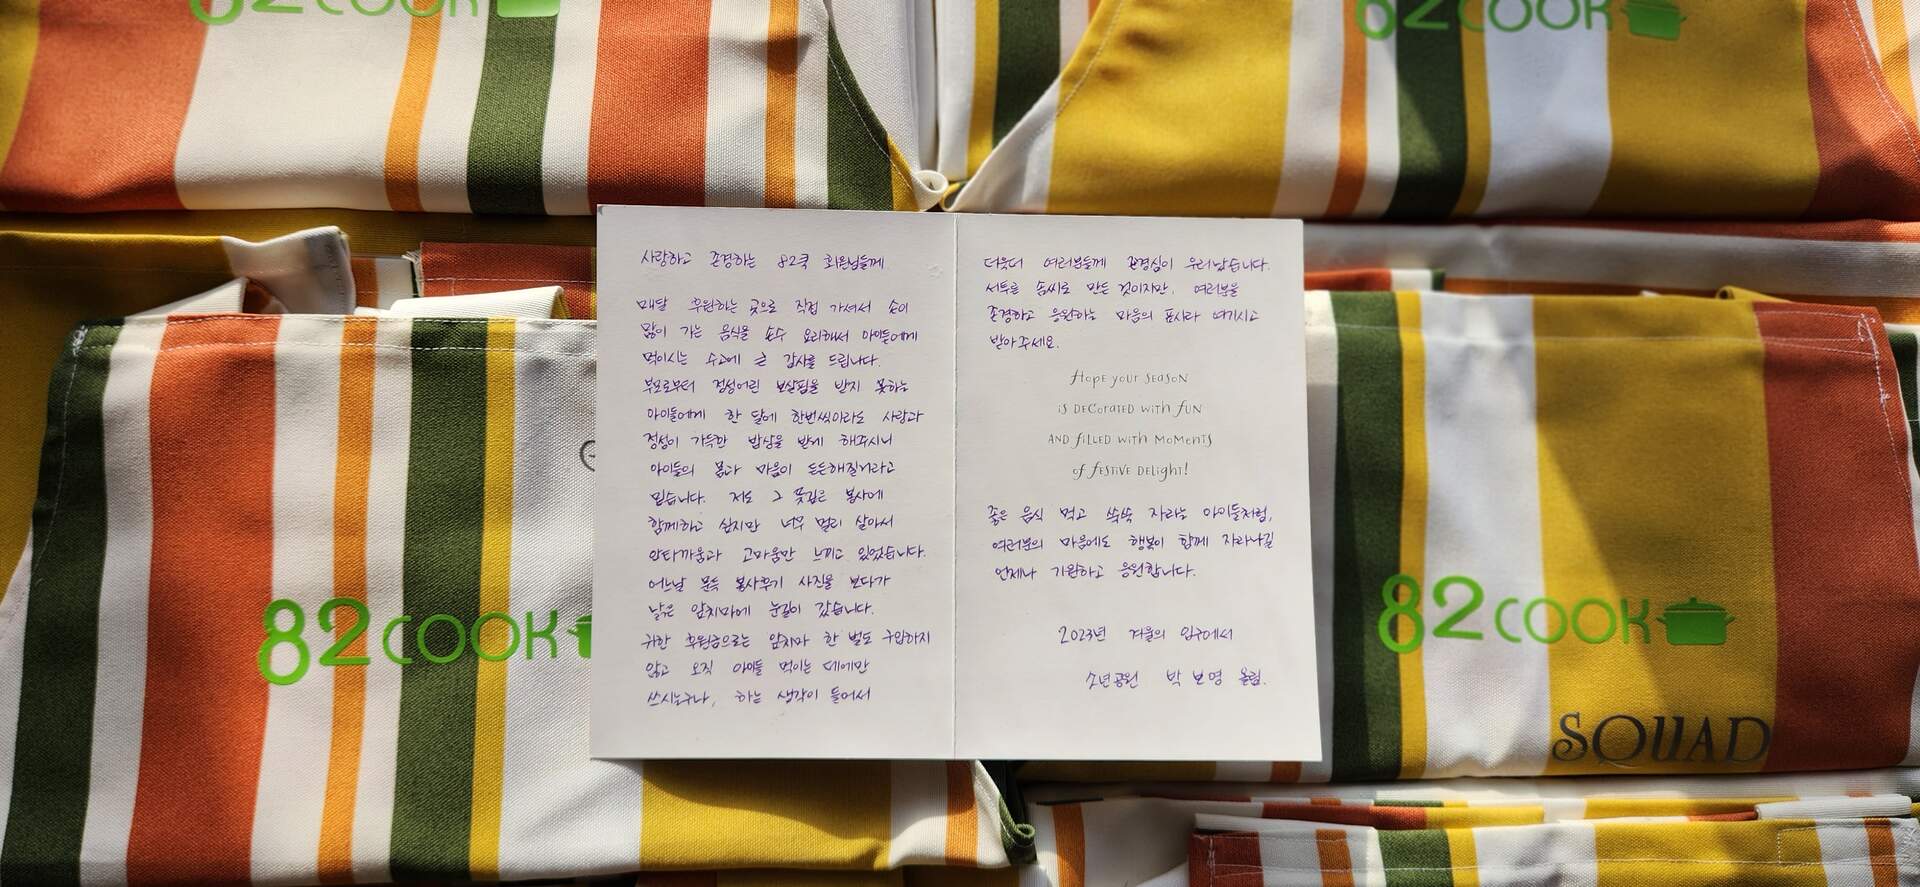 82COOK
82COOK
사랑하고 존경하는 82쿡 회원님들께
매달 후원하는 곳으로 직접 가셔서 손이
많이 가는 음식을 손수 요리해서 아이들에게
먹이시는 수고에 큰 감사를 드립니다.
부모로부터 정성어린 보살핌을 받지 못하는
아이들에게 한 달에 한번씩이라도 사랑과
정성이 가득한 밥상을 받게 해주시니
아이들의 몸과 마음이 든든해질거라고
믿습니다. 저도 그 뜻깊은 봉사에
함께하고 싶지만 너무 멀리 살아서
안타까움과 고마움만 느끼고 있었습니다.
어느날 문득 봉사후기 사진을 보다가
낡은 앞치마에 눈길이 갔습니다.
귀한 후원금으로는 앞치마 한 벌도 구입하지
않고 오직 아이들 먹이는 데에만
쓰시는구나, 하는 생각이 들어서
더욱더 여러분들께 존경심이 우러났습니다.
서투른 솜씨로 만든 것이지만, 여러분을
존경하고 응원하는 마음의 표시라 여기시고
받아주세요.
Hope your season
is decorated with fun
and filled with moments
of festive delight!
좋은 음식 먹고 쑥쑥 자라는 아이들처럼,
여러분의 마음에도 행복이 함께 자라나길
언제나 기원하고 응원합니다.
2023년 겨울의 입구에서
소년공원 박보영 올림.
82COOK
82COOK
SQUAD